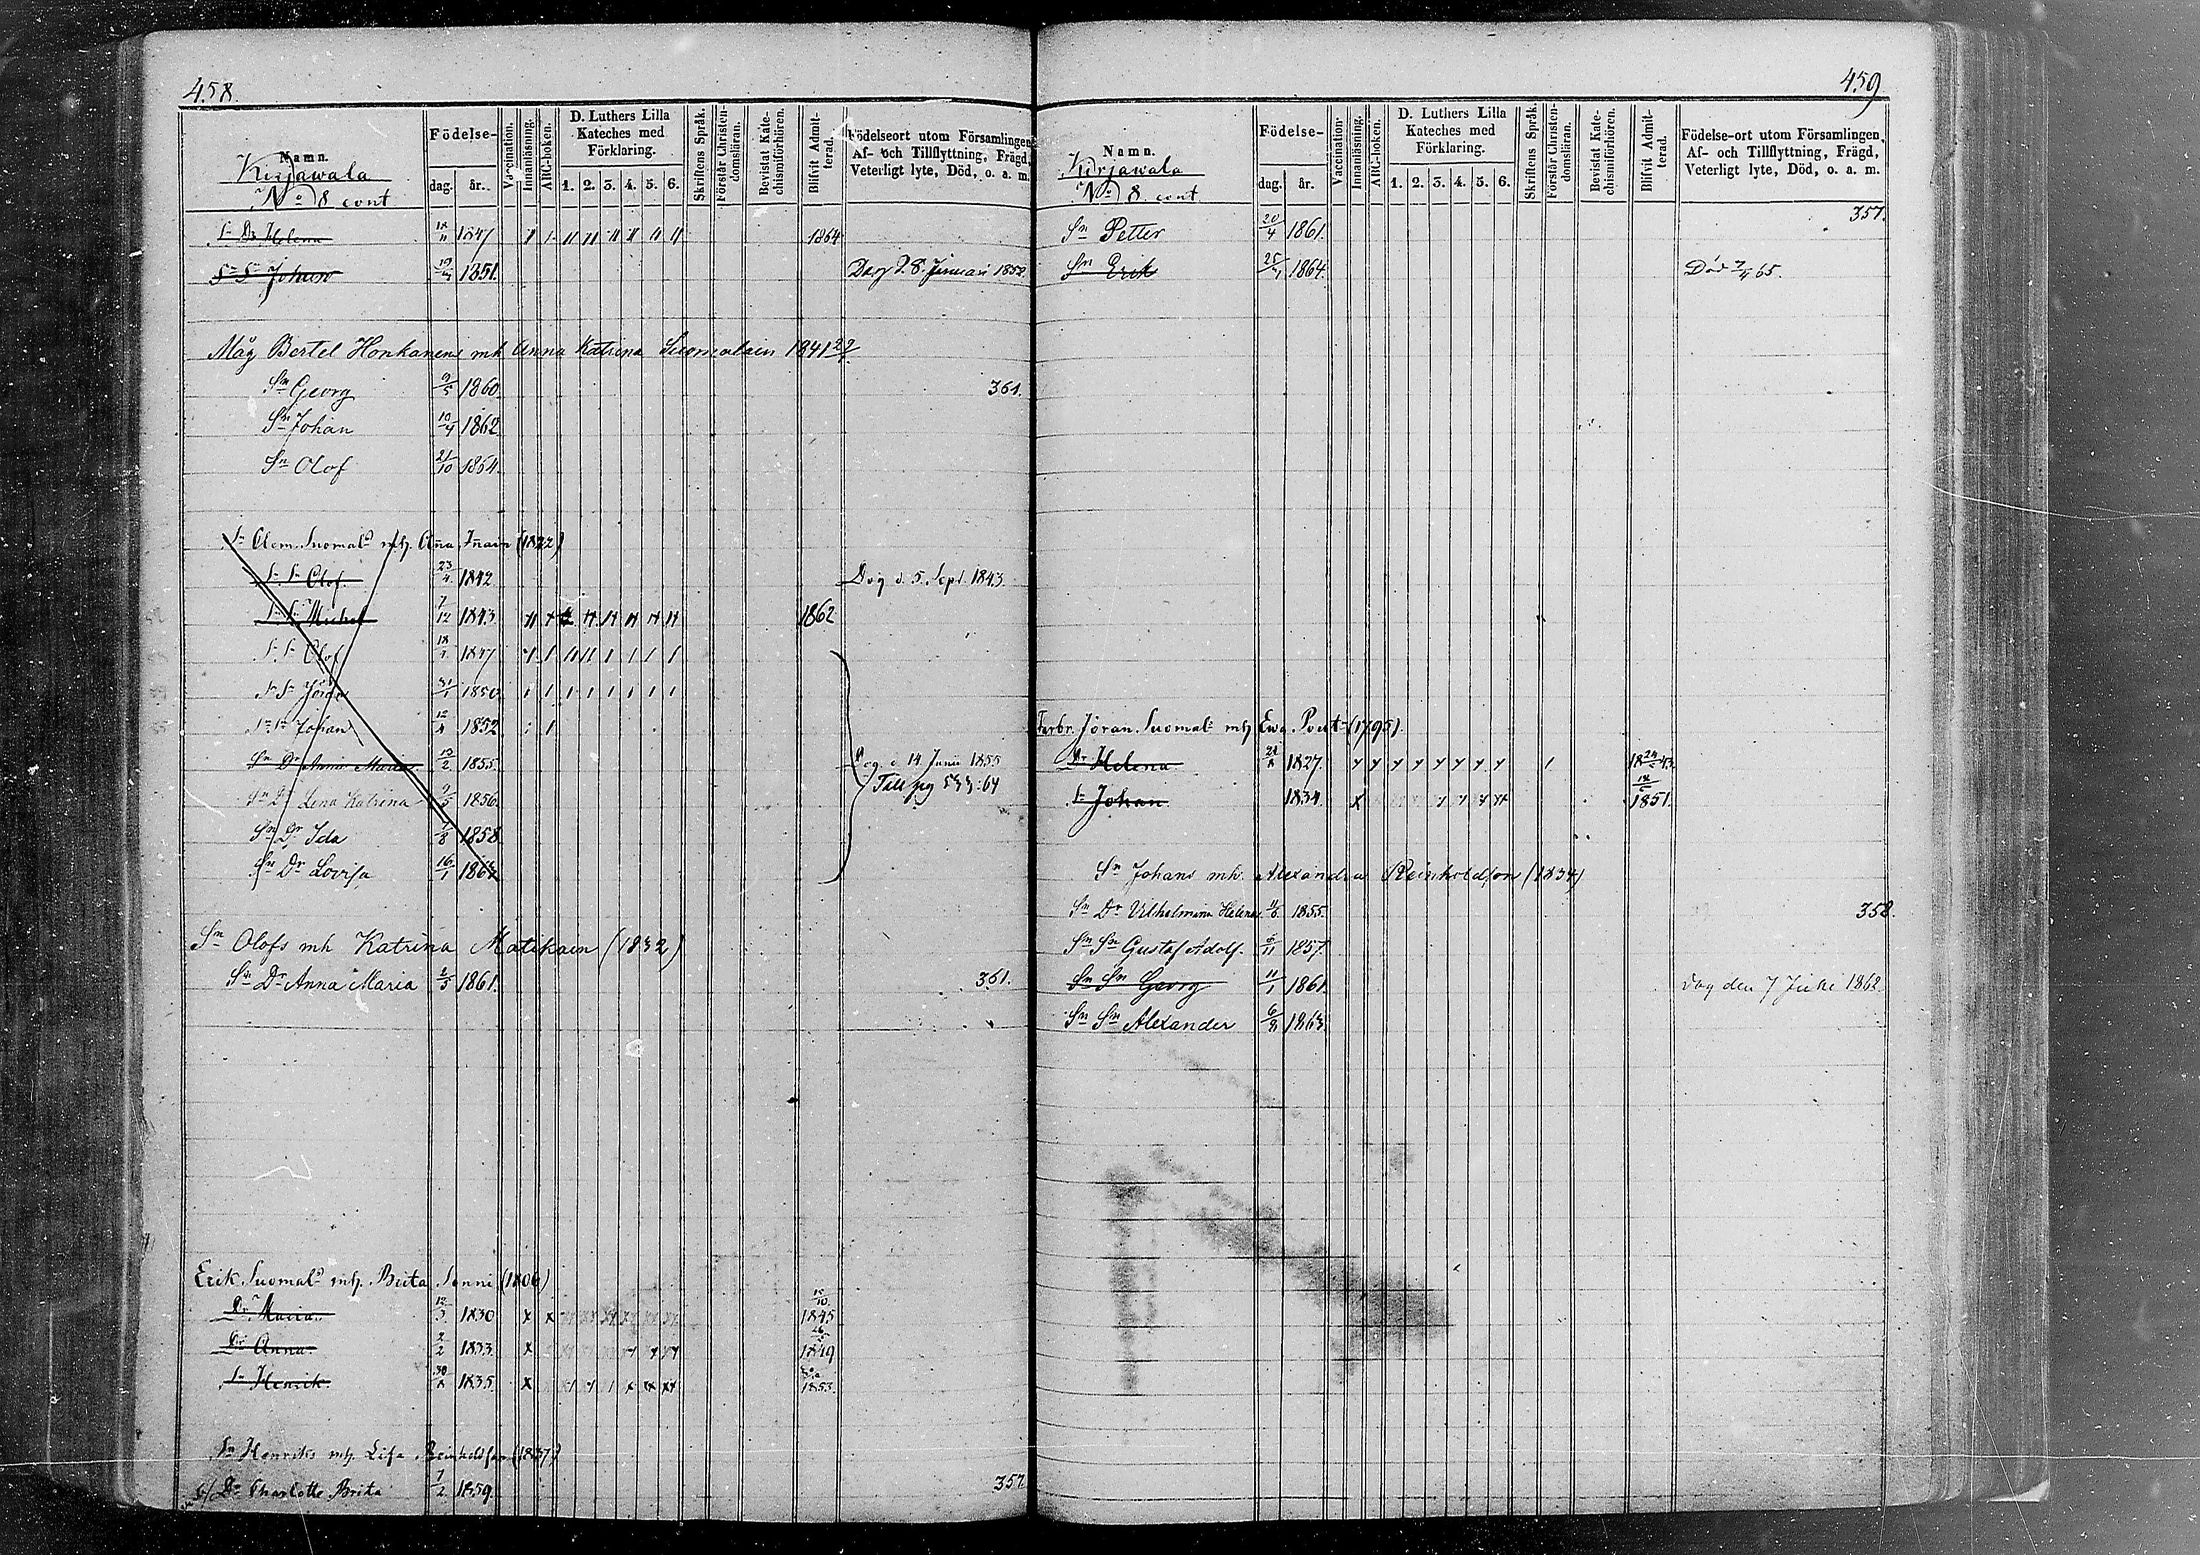 458.
Namn.
Kirjawala
No 8 cont
Födelse-
dag. år.
Vaccination.
Innanläsning.
ABC-boken.
D. Luthers Lilla
Kateches med
Förklaring.
1. 2. 3. 4. 5. 6.
Skriftens Språk.
Förstår Christen-
domsläran.
Bevistat Kate-
chismiförhören.
Blifvit Admit-
terad.
Födelseort utom Församlingen
Af- och Tillflyttning, Frägd,
Veterligt lyte, Död, o. a. m.
Sn Dr Helena 18/11 1847 1864
Sn Sn Johan 19/4 1851. Dog d. 8. Januari 1852.
Måg Bertel Honkanens mh Anna Katrina Suomalain 1841
Sn Georg 9/5 1860. 361.
Sn Johan 10/4 1862
Sn Olof 21/10 1864
Sn Clem. Suomaln mh. Aña Iñain (1822)
Sn Sn Olof 23/4 1842 Dog d. 5. Sept. 1843.
Sn Sn Michel 7/12 1843 1862
Sn Sn Olof 1847
Sn Sn Jöran 31/1 1850
Sn Sn Johan 12/4 1852
Sn Dr Anna Maria 12/2 1855. Dog d 14 Junii 1855
Sn Dr Lena Katrina 1856. Till pag 533:64
Sn Dr Ida 7/8 1858
Sn Dr Lovisa 16/1 1864
Sn Olofs mh Katrina Matikain (1832)
Sn Dr Anna Maria 2/5 1861. 361.
Erik Suomaln mh. Brita Sonni (1806)
Dr Maria 12/3 1830 15/10 1845
Dr Anna 2/2 1833 1849
Sn Henrik 30/8 1835. 1853.
Sn Henriks mh. Lisa Reinholdson (1837)
Dr Charlotte Brita 7/2 1859. 357.
459
Namn.
Kirjawala
No 8. cont
Födelse-
dag. år.
Vaccination.
Innanläsning.
ABC-boken.
D. Luthers Lilla
Kateches med
Förklaring.
1. 2. 3. 4. 5. 6.
Skriftens Språk.
Förstår Christen-
domsläran.
Bevistat Kate-
chismiförhören.
Blifvit Admit-
terad.
Födelse-ort utom Församlingen
Af- och Tillflyttning, Frägd,
Veterligt lyte, Död, o. a. m.
357.
Sn Petter 20/4 1861.
Sn Erik 25/1 1864. Död 7/4 65.
Farbr. Jöran Suomaln mh Ewa Pout (1795)
Dr Helena 21/8 1827 1843
Sn Johan 1834 1851.
Sn Johans mh. Alexandra Reinholdson (1834)
Sn Dr Vilhelmina Helena 11/6 1855. 358.
Sn Sn Gustaf Adolf. 5/11 1857.
Sn Sn Georg 11/1 1861. Dog den 7 Juni 1862.
Sn Sn Alexander 6/8 1863.